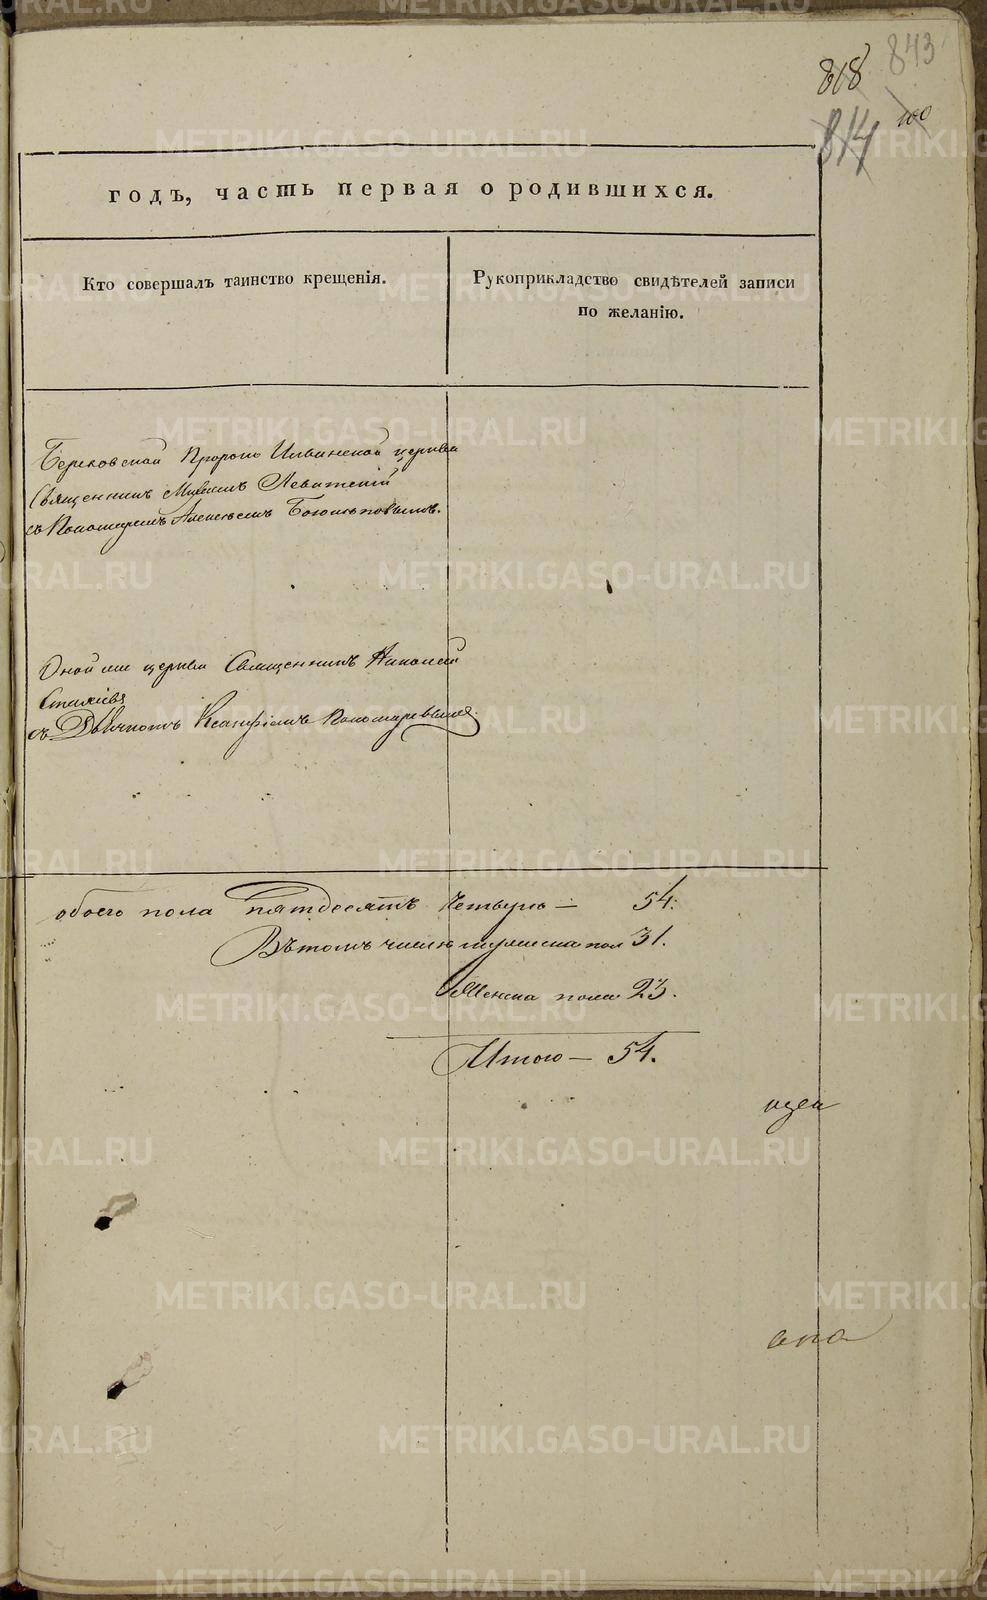 843
818
100
814
годъ, часть первая о родившихся.
Кто совершалъ таинство крещенія.
Рукоприкладство свидѣтелей записи
по желанію.
Пророко Ильинской церкви
Священникъ Левитскій
съ Пономаремъ Алексѣемъ
Оной же церкви Священникъ
съ Дьячкомъ Ксанфіемъ Пономаревымъ.
обоего пола пятдесятъ четыре — 54.
Въ томъ числѣ мужеска пол 31.
Женска пола 23.
Итого — 54.
METRIKI.GASO-URAL.RU